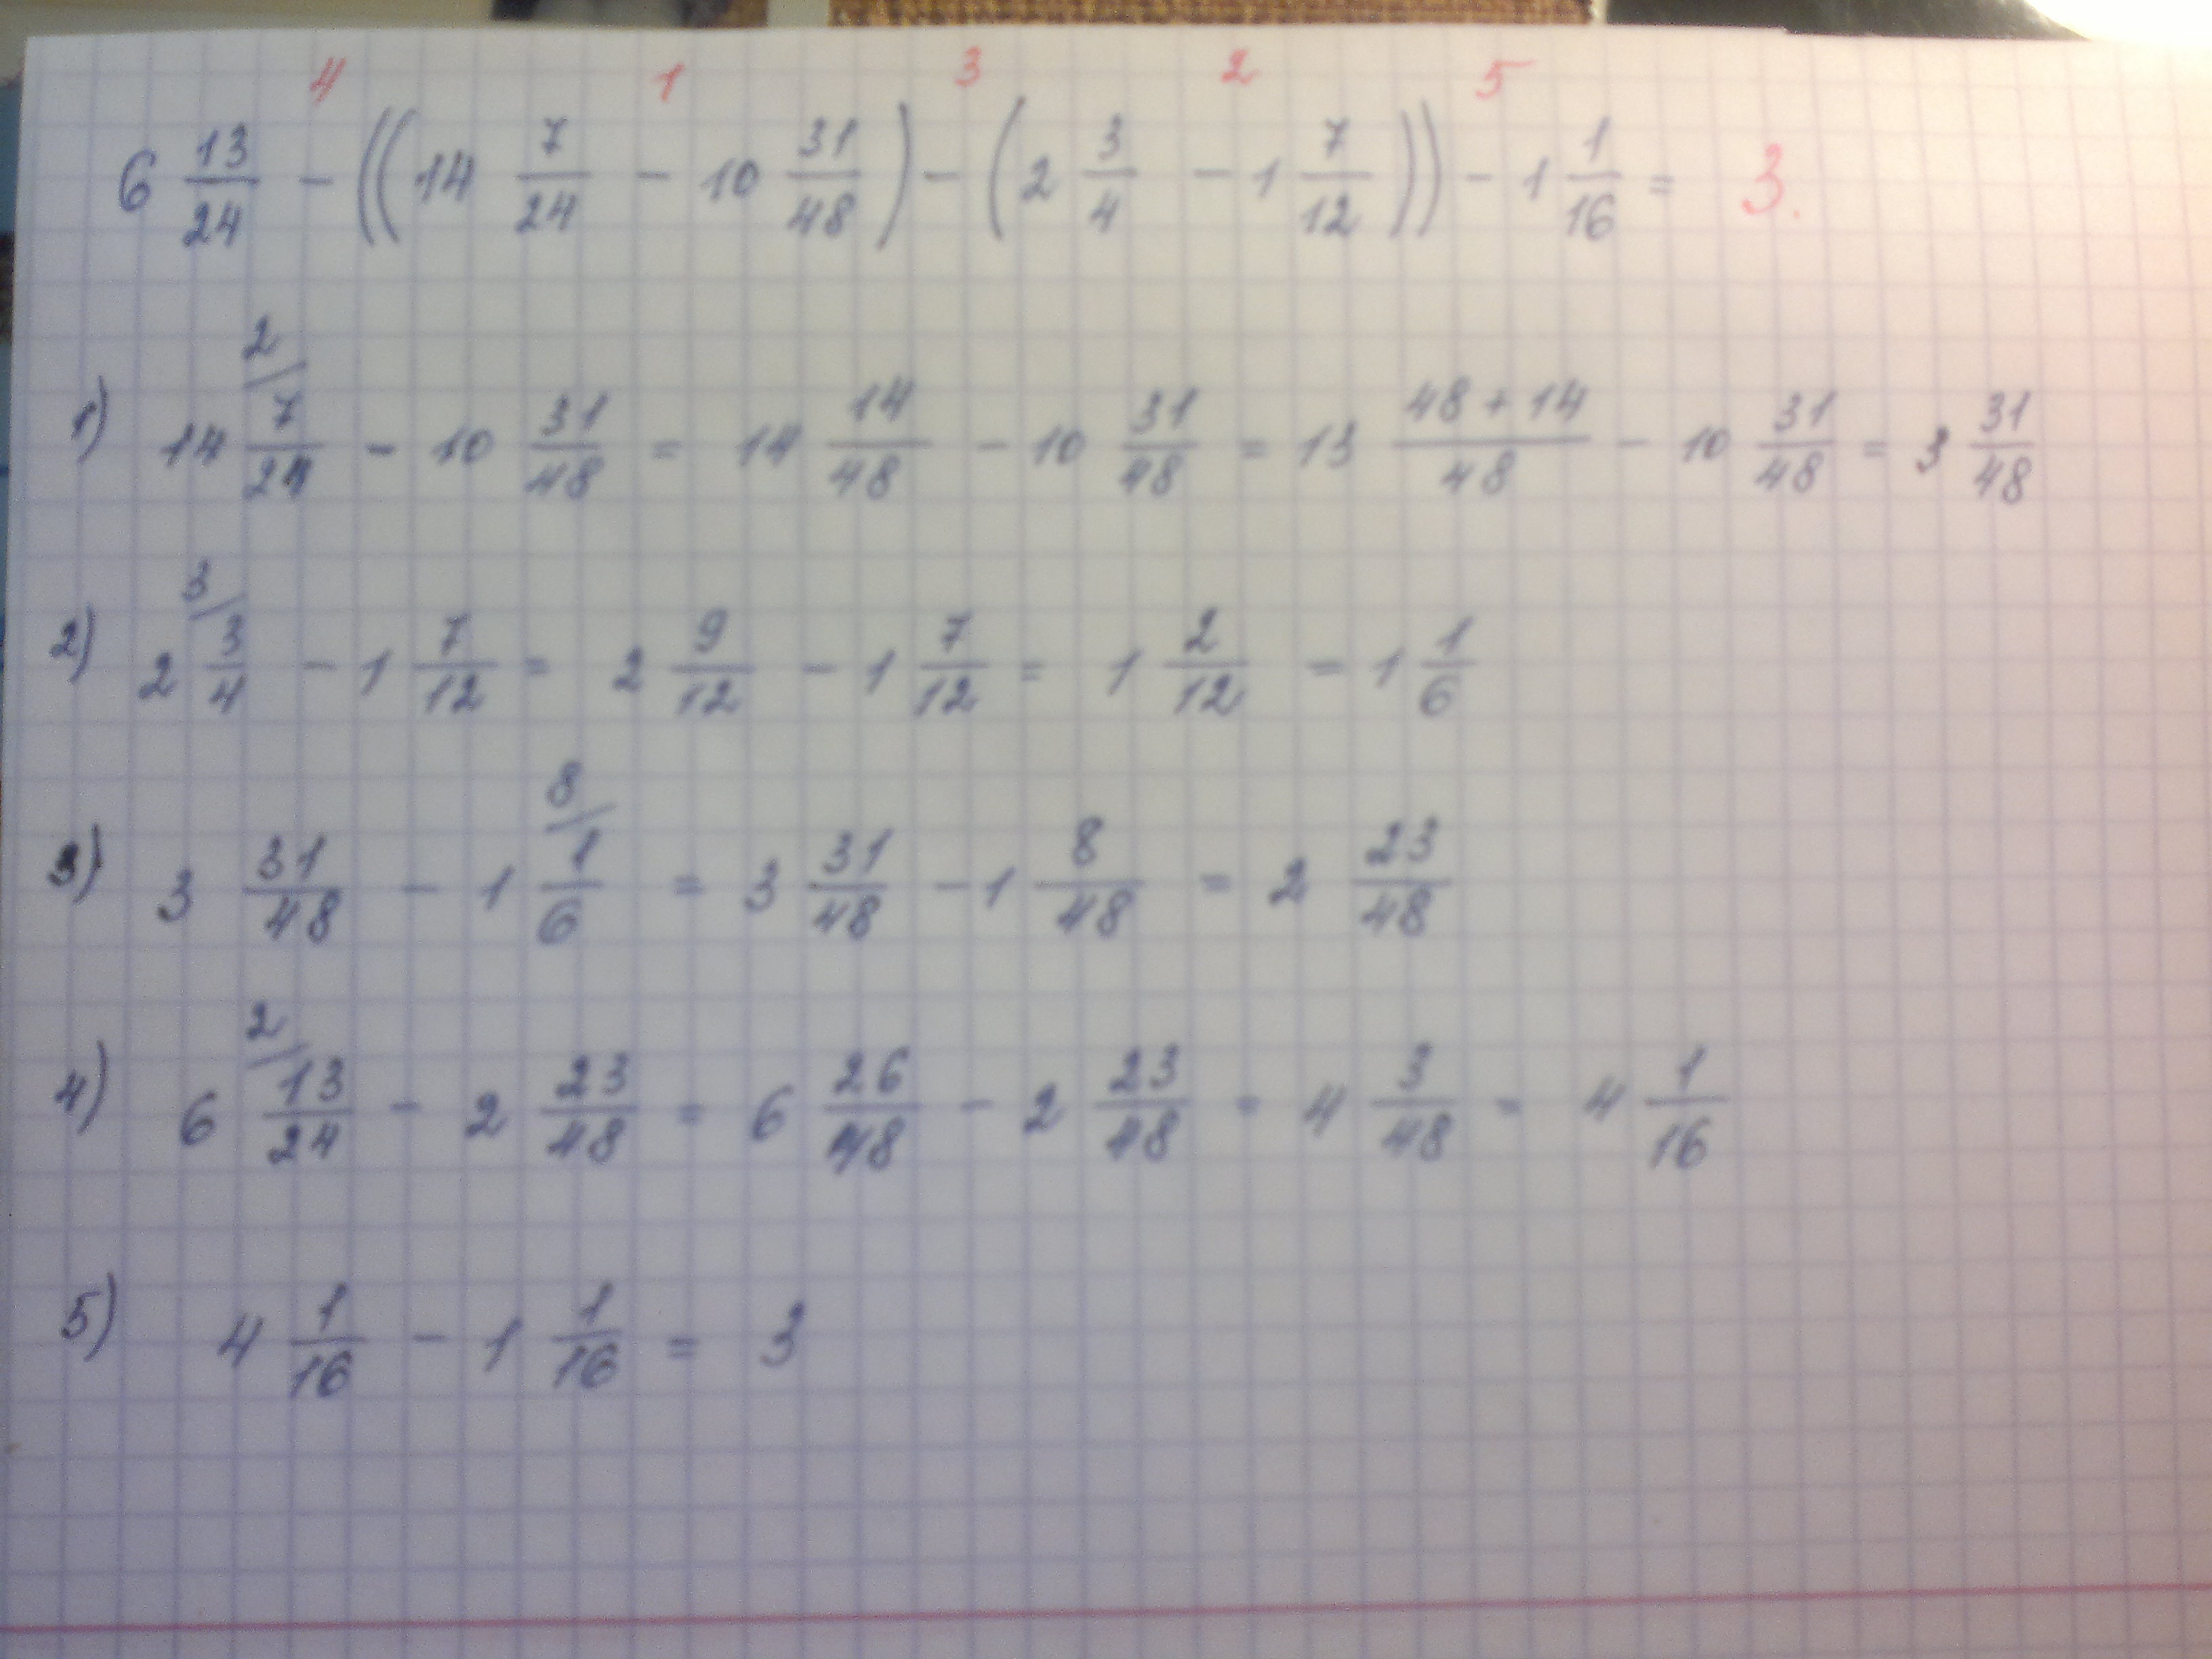 4 1 3 2 5
6 13/24 - ((14 7/24 - 10 31/48) - (2 3/4 - 1 7/12)) - 1 1/16 = 3.
1) 14 2/ 7/24 - 10 31/48 = 14 14/48 - 10 31/48 = 13 48+14/48 - 10 31/48 = 3 31/48
2) 2 3/ 3/4 - 1 7/12 = 2 9/12 - 1 7/12 = 1 2/12 = 1 1/6
3) 3 31/48 - 1 8/ 1/6 = 3 31/48 - 1 8/48 = 2 23/48
4) 6 2/ 13/24 - 2 23/48 = 6 26/48 - 2 23/48 = 4 3/48 = 4 1/16
5) 4 1/16 - 1 1/16 = 3